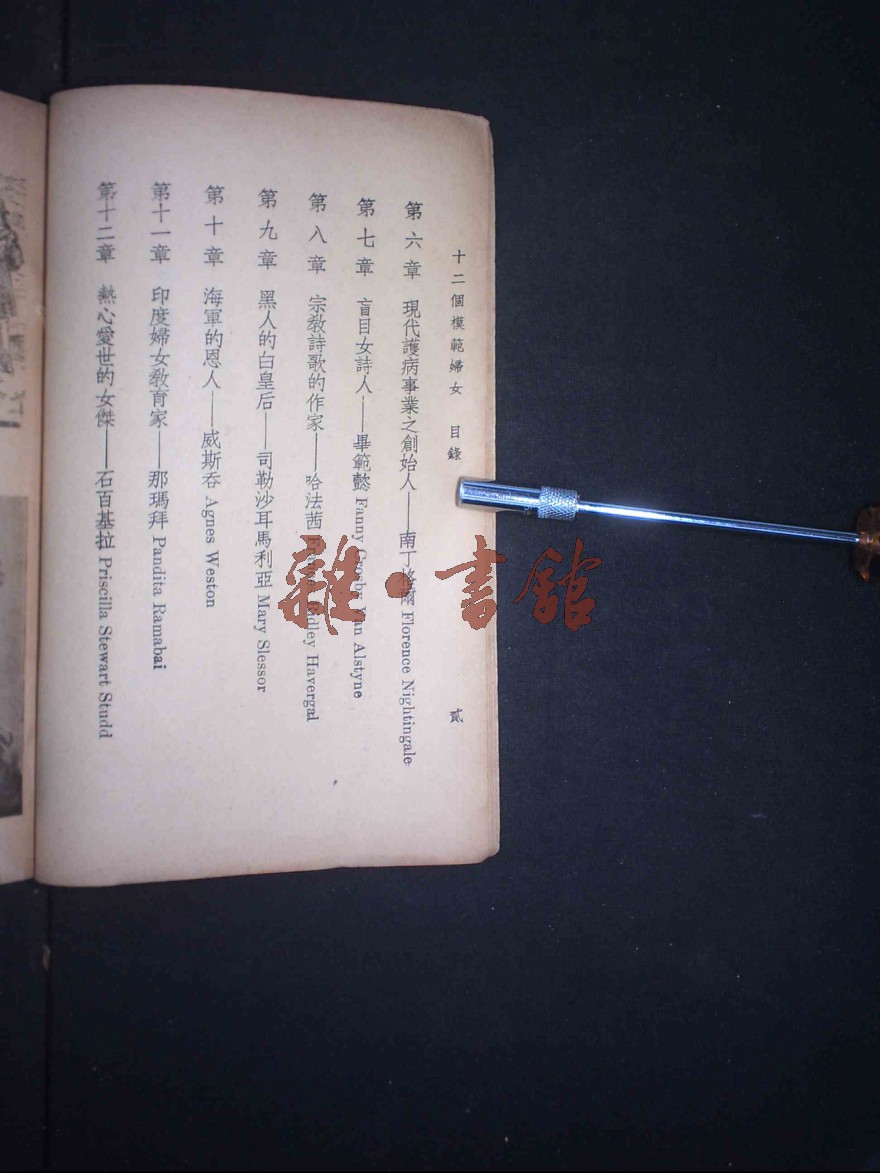 十二個模範婦女 目錄 貳
第六章 現代護病事業之創始人——南丁格爾 Florence Nightingale
第七章 盲目女詩人——畢範懿 Fanny Crosby Van Alstyne
第八章 宗教詩歌的作家——哈法茜 Ridley Havergal
第九章 黑人的白皇后——司勒沙耳馬利亞 Mary Slessor
第十章 海軍的恩人——威斯呑 Agnes Weston
第十一章 印度婦女教育家——那瑪拜 Pandita Ramabai
第十二章 熱心愛世的女傑——石百基拉 Priscilla Stewart Studd
雜·書館